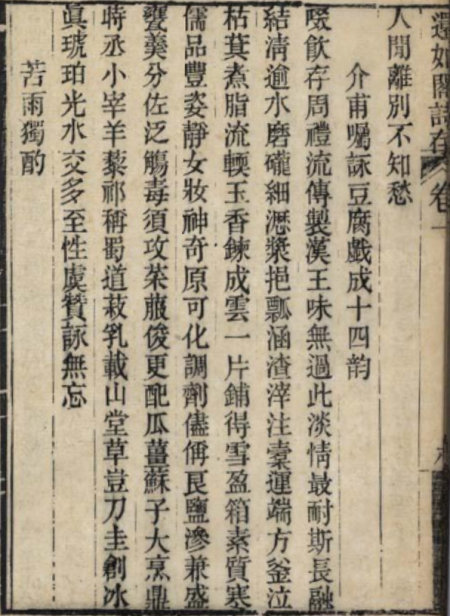 還如閣詩存 卷一
人間離別不知愁
介甫囑詠豆腐戲成十四韵
啜飲存周禮流傳製漢王味無過此淡情最耐斯長融
結清逾水磨礲細瀝漿挹瓢涵渣滓注橐運端方釜泣
枯萁煮脂流輭玉香鍊成雲一片鋪得雪盈箱素質寒
儒品豐姿靜女妝神奇原可化調劑儘侢艮鹽滲兼盛
虀羹分佐泛觴毒須攻萊菔俊更配瓜薑蘇子大烹鼎
時丞小宰羊藜祁稱蜀道菽乳載山堂草豈刀圭創冰
眞琥珀光水交多至性虞贊詠無忘
苦雨獨酌